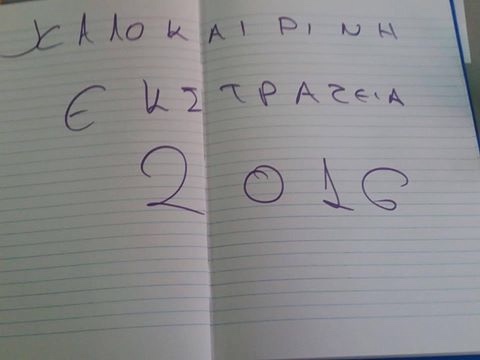 ΧΑΛΟΚΑΙΡΙΝΗ
ΕΚΣΤΡΑΤΕΙΑ
2016